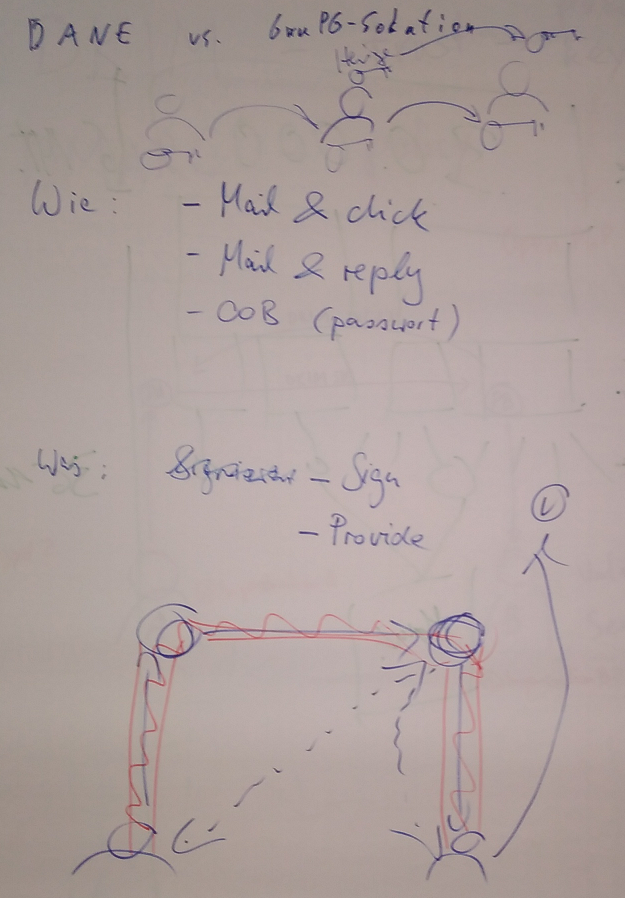 DANE vs. GnuPG-Solution
Heise
Wie: - Mail & click
- Mail & reply
- OOB (passwort)
Was: - Sign
- Provide